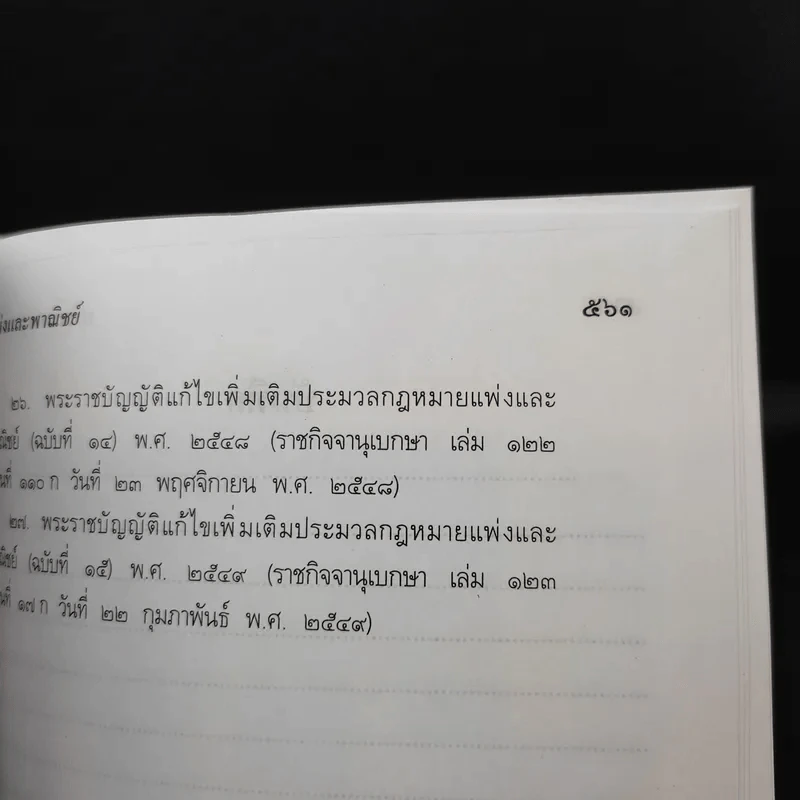 ๕๖๑
และพาณิชย์
๒๖. พระราชบัญญัติแก้ไขเพิ่มเติมประมวลกฎหมายแพ่งและ
(ฉบับที่ ๑๔) พ.ศ. ๒๕๔๘ (ราชกิจจานุเบกษา เล่ม ๑๒๒
๑๑๐ ก วันที่ ๒๓ พฤศจิกายน พ.ศ. ๒๕๔๘)
๒๗. พระราชบัญญัติแก้ไขเพิ่มเติมประมวลกฎหมายแพ่งและ
(ฉบับที่ ๑๕) พ.ศ. ๒๕๔๙ (ราชกิจจานุเบกษา เล่ม ๑๒๓
๑๗ ก วันที่ ๒๒ กุมภาพันธ์ พ.ศ. ๒๕๔๙)